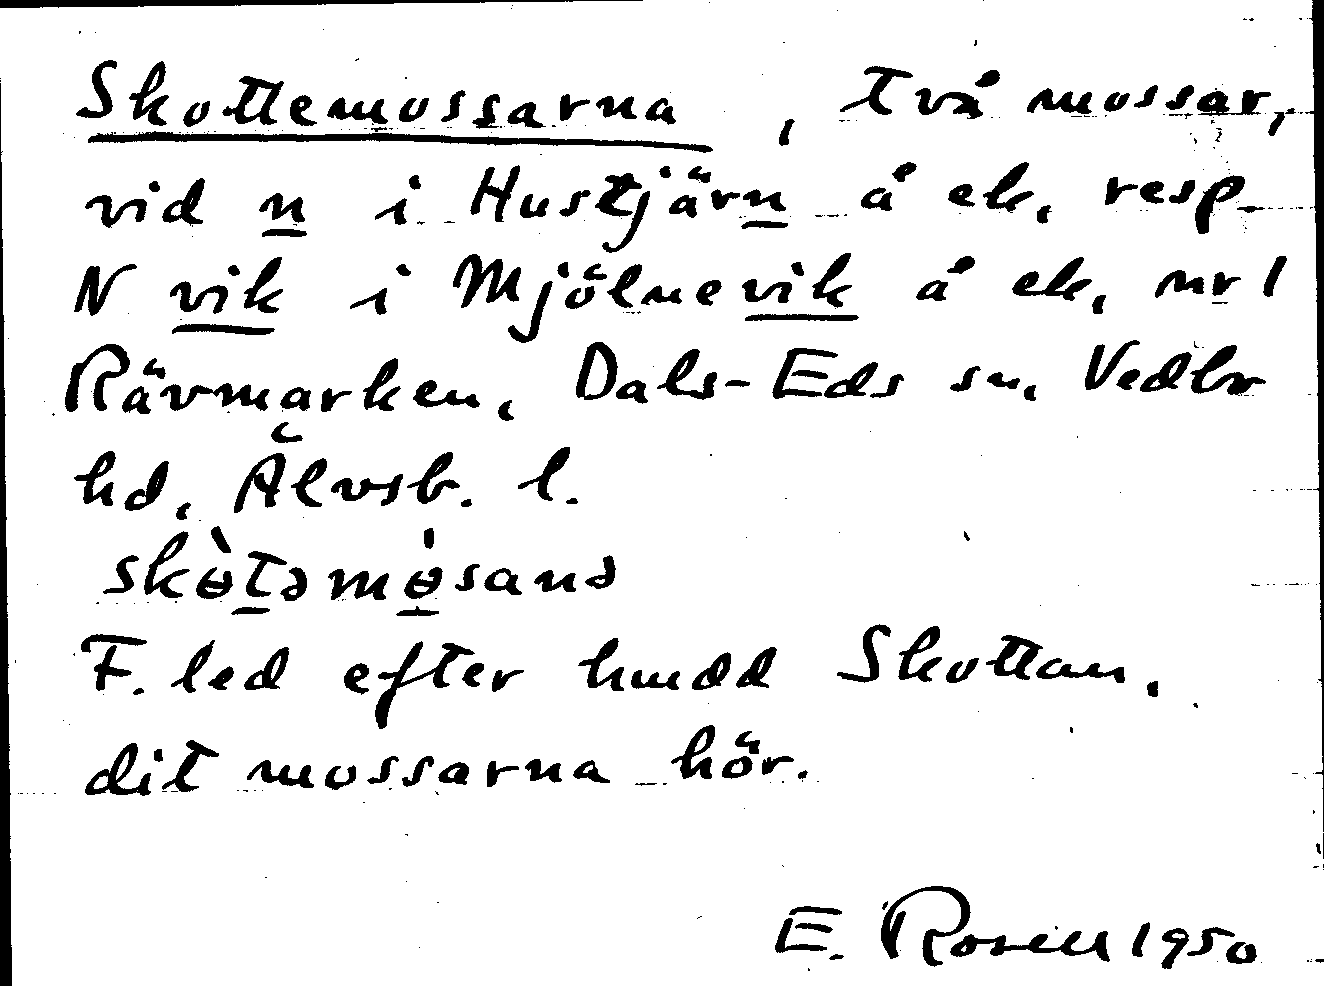 Skottemossarna, två mossar,
vid n i Hustjärn å ek. resp.
N vik i Mjölnevik å ek. nr 1
Rävmarken, Dals-Eds sn. Vedbo
hd, Älvsb. l.
skɵ̀təmɵ̀sanə
F. led efter hmdd Skottan,
dit mossarna hör.
E. Rosell 1950